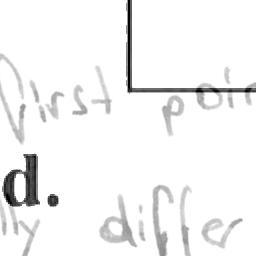 first poin
d.
lly differ